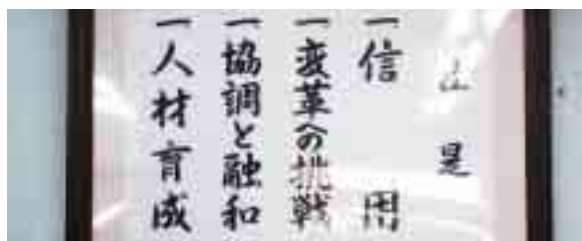 社是
一信用
一変革への挑戦
一協調と融和
一人材育成